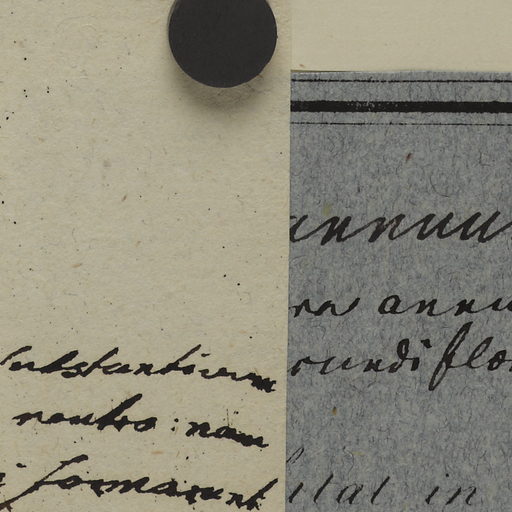 substantivum
neutro: nam
formarunt
annuu
annu
rundiflo
itat in